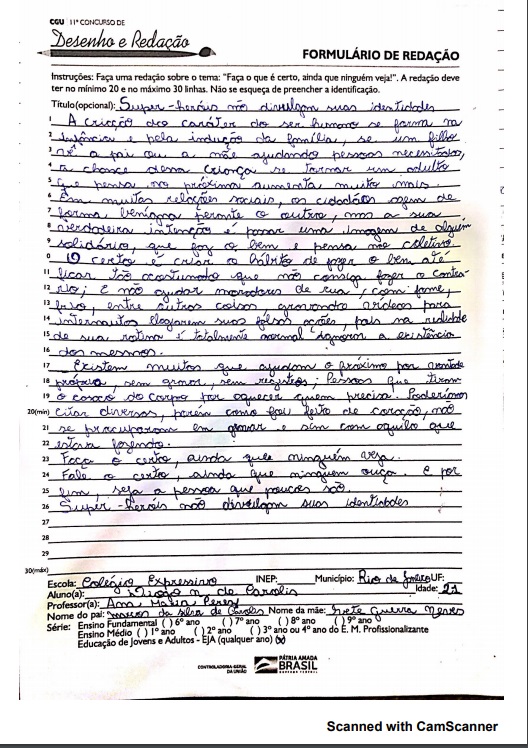 CGU 11º CONCURSO DE
Desenho e Redação
FORMULÁRIO DE REDAÇÃO
Instruções: Faça uma redação sobre o tema: "Faça o que é certo, ainda que ninguém veja!". A redação deve
ter no mínimo 20 e no máximo 30 linhas. Não se esqueça de preencher a identificação.
Título(opcional): Super-heróis não divulgam suas identidades
1 A criação do caráter do ser humano se forma na
2 infância e pela indução da família, se um filho
3 vê a pai ou a mãe ajudando pessoas necessitadas,
4 a chance dessa criança se tornar um adulto
5 que pensa no próximo aumenta muito mais.
6 Em muitas relações sociais, os cidadãos agem de
7 forma benigna perante o outro, mas a sua
8 verdadeira intenção é passar uma imagem de alguém
9 solidário, que faz o bem e pensa no coletivo.
10 O certo é criar o hábito de fazer o bem até
11 ficar tão acostumado que não consiga fazer o contrá-
12 rio; E não ajudar moradores de rua, com fome,
13 frio, entre outras coisas gravando vídeos para
14 internautas elogiarem suas falsas ações, pois na realidade
15 de sua rotina é totalmente normal ignorar a existência
16 dos mesmos.
17 Existem muitos que ajudam o próximo por vontade
18 própria, sem gravar, sem registros; Pessoas que tiram
19 o casaco do corpo por aquecer quem precisa. Poderíamos
20(min) citar diversos, porém como foi feito de coração, não
21 se preocuparam em gravar e sim com aquilo que
22 estava fazendo.
23 Faça o certo, ainda que ninguém veja.
24 Fale o certo, ainda que ninguém ouça. E por
25 fim, seja a pessoa que poucos são.
26 Super-heróis não divulgam suas identidades
27
28
29
30(máx)
Escola: Colégio Expressivo INEP: Município: Rio de Janeiro UF:
Aluno(a): Diogo N. de Carolis Idade: 21
Professor(a): Ana Maria Perez
Nome do pai: Marcos da Silva de Carolis Nome da mãe: Ivete Guerra Neves
Série: Ensino Fundamental ( ) 6º ano ( ) 7º ano ( ) 8º ano ( ) 9º ano
Ensino Médio ( ) 1º ano ( ) 2º ano ( ) 3º ano ou 4º ano do E. M. Profissionalizante
Educação de Jovens e Adultos - EJA (qualquer ano) (x)
CONTROLADORIA-GERAL
DA UNIÃO
PÁTRIA AMADA
BRASIL
GOVERNO FEDERAL
Scanned with CamScanner